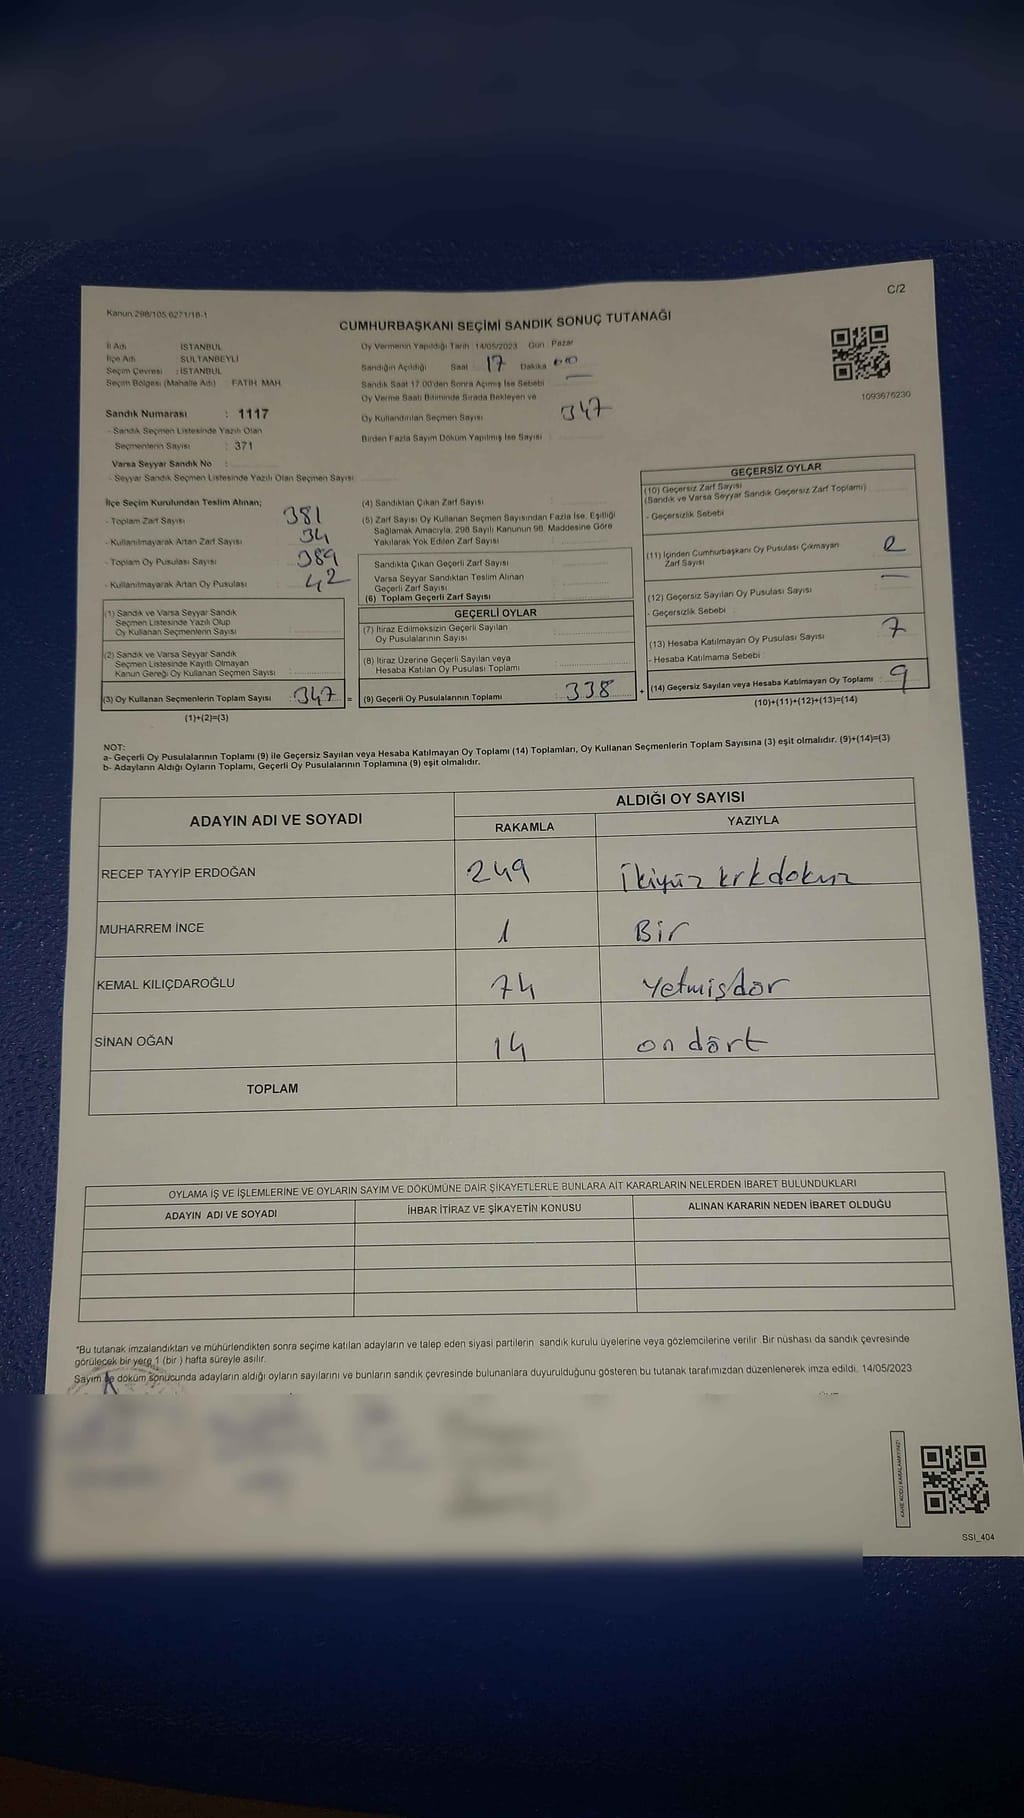 C/2
Kanun.298/105,6271/18-1
CUMHURBAŞKANI SEÇİMİ SANDIK SONUÇ TUTANAĞI
1093676230
İl Adı İSTANBUL
İlçe Adı SULTANBEYLİ
Seçim Çevresi : İSTANBUL
Seçim Bölgesi (Mahalle Adı) : FATİH MAH.
Sandık Numarası : 1117
- Sandık Seçmen Listesinde Yazılı Olan
Seçmenlerin Sayısı : 371
Varsa Seyyar Sandık No :
- Seyyar Sandık Seçmen Listesinde Yazılı Olan Seçmen Sayısı
Oy Vermenin Yapıldığı Tarih : 14/05/2023 Gün : Pazar
Sandığın Açıldığı Saat 17 Dakika
Sandık Saat 17.00'den Sonra Açımış İse Sebebi —
Oy Verme Saati Bitiminde Sırada Bekleyen ve
Oy Kullandırılan Seçmen Sayısı 347
Birden Fazla Sayım Döküm Yapılmış İse Sayısı :
İlçe Seçim Kurulundan Teslim Alınan;
- Toplam Zarf Sayısı 381
- Kullanılmayarak Artan Zarf Sayısı 34
- Toplam Oy Pusulası Sayısı 389
- Kullanılmayarak Artan Oy Pusulası 42
(1) Sandık ve Varsa Seyyar Sandık
Seçmen Listesinde Yazılı Olup
Oy Kullanan Seçmenlerin Sayısı
(2) Sandık ve Varsa Seyyar Sandık
Seçmen Listesinde Kayıtlı Olmayan
Kanun Gereği Oy Kullanan Seçmen Sayısı
(3) Oy Kullanan Seçmenlerin Toplam Sayısı 347 =
(1)+(2)=(3)
(4) Sandıktan Çıkan Zarf Sayısı
(5) Zarf Sayısı Oy Kullanan Seçmen Sayısından Fazla İse, Eşitliği
Sağlamak Amacıyla, 298 Sayılı Kanunun 98. Maddesine Göre
Yakılarak Yok Edilen Zarf Sayısı
Sandıkta Çıkan Geçerli Zarf Sayısı
Varsa Seyyar Sandıktan Teslim Alınan
Geçerli Zarf Sayısı
(6) Toplam Geçerli Zarf Sayısı
GEÇERLİ OYLAR
(7) İtiraz Edilmeksizin Geçerli Sayılan
Oy Pusulalarının Sayısı
(8) İtiraz Üzerine Geçerli Sayılan veya
Hesaba Katılan Oy Pusulası Toplamı
(9) Geçerli Oy Pusulalarının Toplamı 338 +
GEÇERSİZ OYLAR
(10) Geçersiz Zarf Sayısı
(Sandık ve Varsa Seyyar Sandık Geçersiz Zarf Toplamı)
- Geçersizlik Sebebi :
(11) İçinden Cumhurbaşkanı Oy Pusulası Çıkmayan
Zarf Sayısı 2
(12) Geçersiz Sayılan Oy Pusulası Sayısı —
- Geçersizlik Sebebi :
(13) Hesaba Katılmayan Oy Pusulası Sayısı 7
- Hesaba Katılmama Sebebi :
(14) Geçersiz Sayılan veya Hesaba Katılmayan Oy Toplamı 9
(10)+(11)+(12)+(13)=(14)
NOT:
a- Geçerli Oy Pusulalarının Toplamı (9) ile Geçersiz Sayılan veya Hesaba Katılmayan Oy Toplamı (14) Toplamları, Oy Kullanan Seçmenlerin Toplam Sayısına (3) eşit olmalıdır. (9)+(14)=(3)
b- Adayların Aldığı Oyların Toplamı, Geçerli Oy Pusulalarının Toplamına (9) eşit olmalıdır.
ADAYIN ADI VE SOYADI
ALDIĞI OY SAYISI
RAKAMLA YAZIYLA
RECEP TAYYİP ERDOĞAN 249 İkiyüz krkdokuz
MUHARREM İNCE 1 Bir
KEMAL KILIÇDAROĞLU 74 Yetmişdör
SİNAN OĞAN 14 on dört
TOPLAM
OYLAMA İŞ VE İŞLEMLERİNE VE OYLARIN SAYIM VE DÖKÜMÜNE DAİR ŞİKAYETLERLE BUNLARA AİT KARARLARIN NELERDEN İBARET BULUNDUKLARI
ADAYIN ADI VE SOYADI İHBAR İTİRAZ VE ŞİKAYETİN KONUSU ALINAN KARARIN NEDEN İBARET OLDUĞU
*Bu tutanak imzalandıktan ve mühürlendikten sonra seçime katılan adayların ve talep eden siyasi partilerin sandık kurulu üyelerine veya gözlemcilerine verilir. Bir nüshası da sandık çevresinde
görülecek bir yere 1 (bir) hafta süreyle asılır.
Sayım ve döküm sonucunda adayların aldığı oyların sayılarını ve bunların sandık çevresinde bulunanlara duyurulduğunu gösteren bu tutanak tarafımızdan düzenlenerek imza edildi. 14/05/2023
KARE KODU KARALAMAYINIZ!
SSI_404